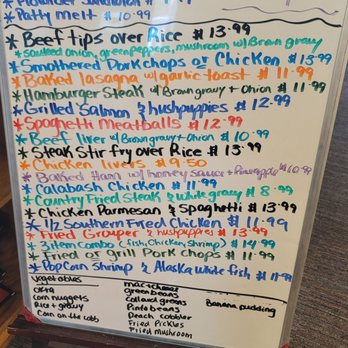 * Flounder Sandwich $
* Patty melt * $10.99
* Beef tips over Rice $13.99
* Sauteed onion, green peppers, mushroom w/ Brown gravy
* Smothered Pork chops or Chicken $13.99
* Baked lasagna w/ garlic toast $11.99
* Hamburger Steak w/ Brown gravy + Onion $11.99
* Grilled Salmon & hushpuppies $12.99
* Spaghetti Meatballs $12.99
* Beef liver w/ Brown gravy + Onion $10.99
* Steak Stir fry over Rice $13.99
* Chicken livers $9.50
* Baked Ham w/ honey sauce + Pineapple $10.99
* Calabash Chicken $11.99
* Country Fried Steak & white gravy $8.99
* Chicken Parmesan & Spaghetti $13.99
* 1/2 Southern Fried Chicken $11.99
* Fried Grouper & hushpuppies $13.99
* 3 item Combo (Fish, Chicken, Shrimp) $14.99
* Fried or Grill Pork chops $11.99
* Pop Corn Shrimp & Alaska white fish $11.99
Vegetables
Okra
Corn nuggets
Rice + gravy
Corn on the cobb
mac + cheese
green beans
Collard greens
Pinto beans
Peach cobbler
Fried Pickles
Fried Mushroom
Banana pudding